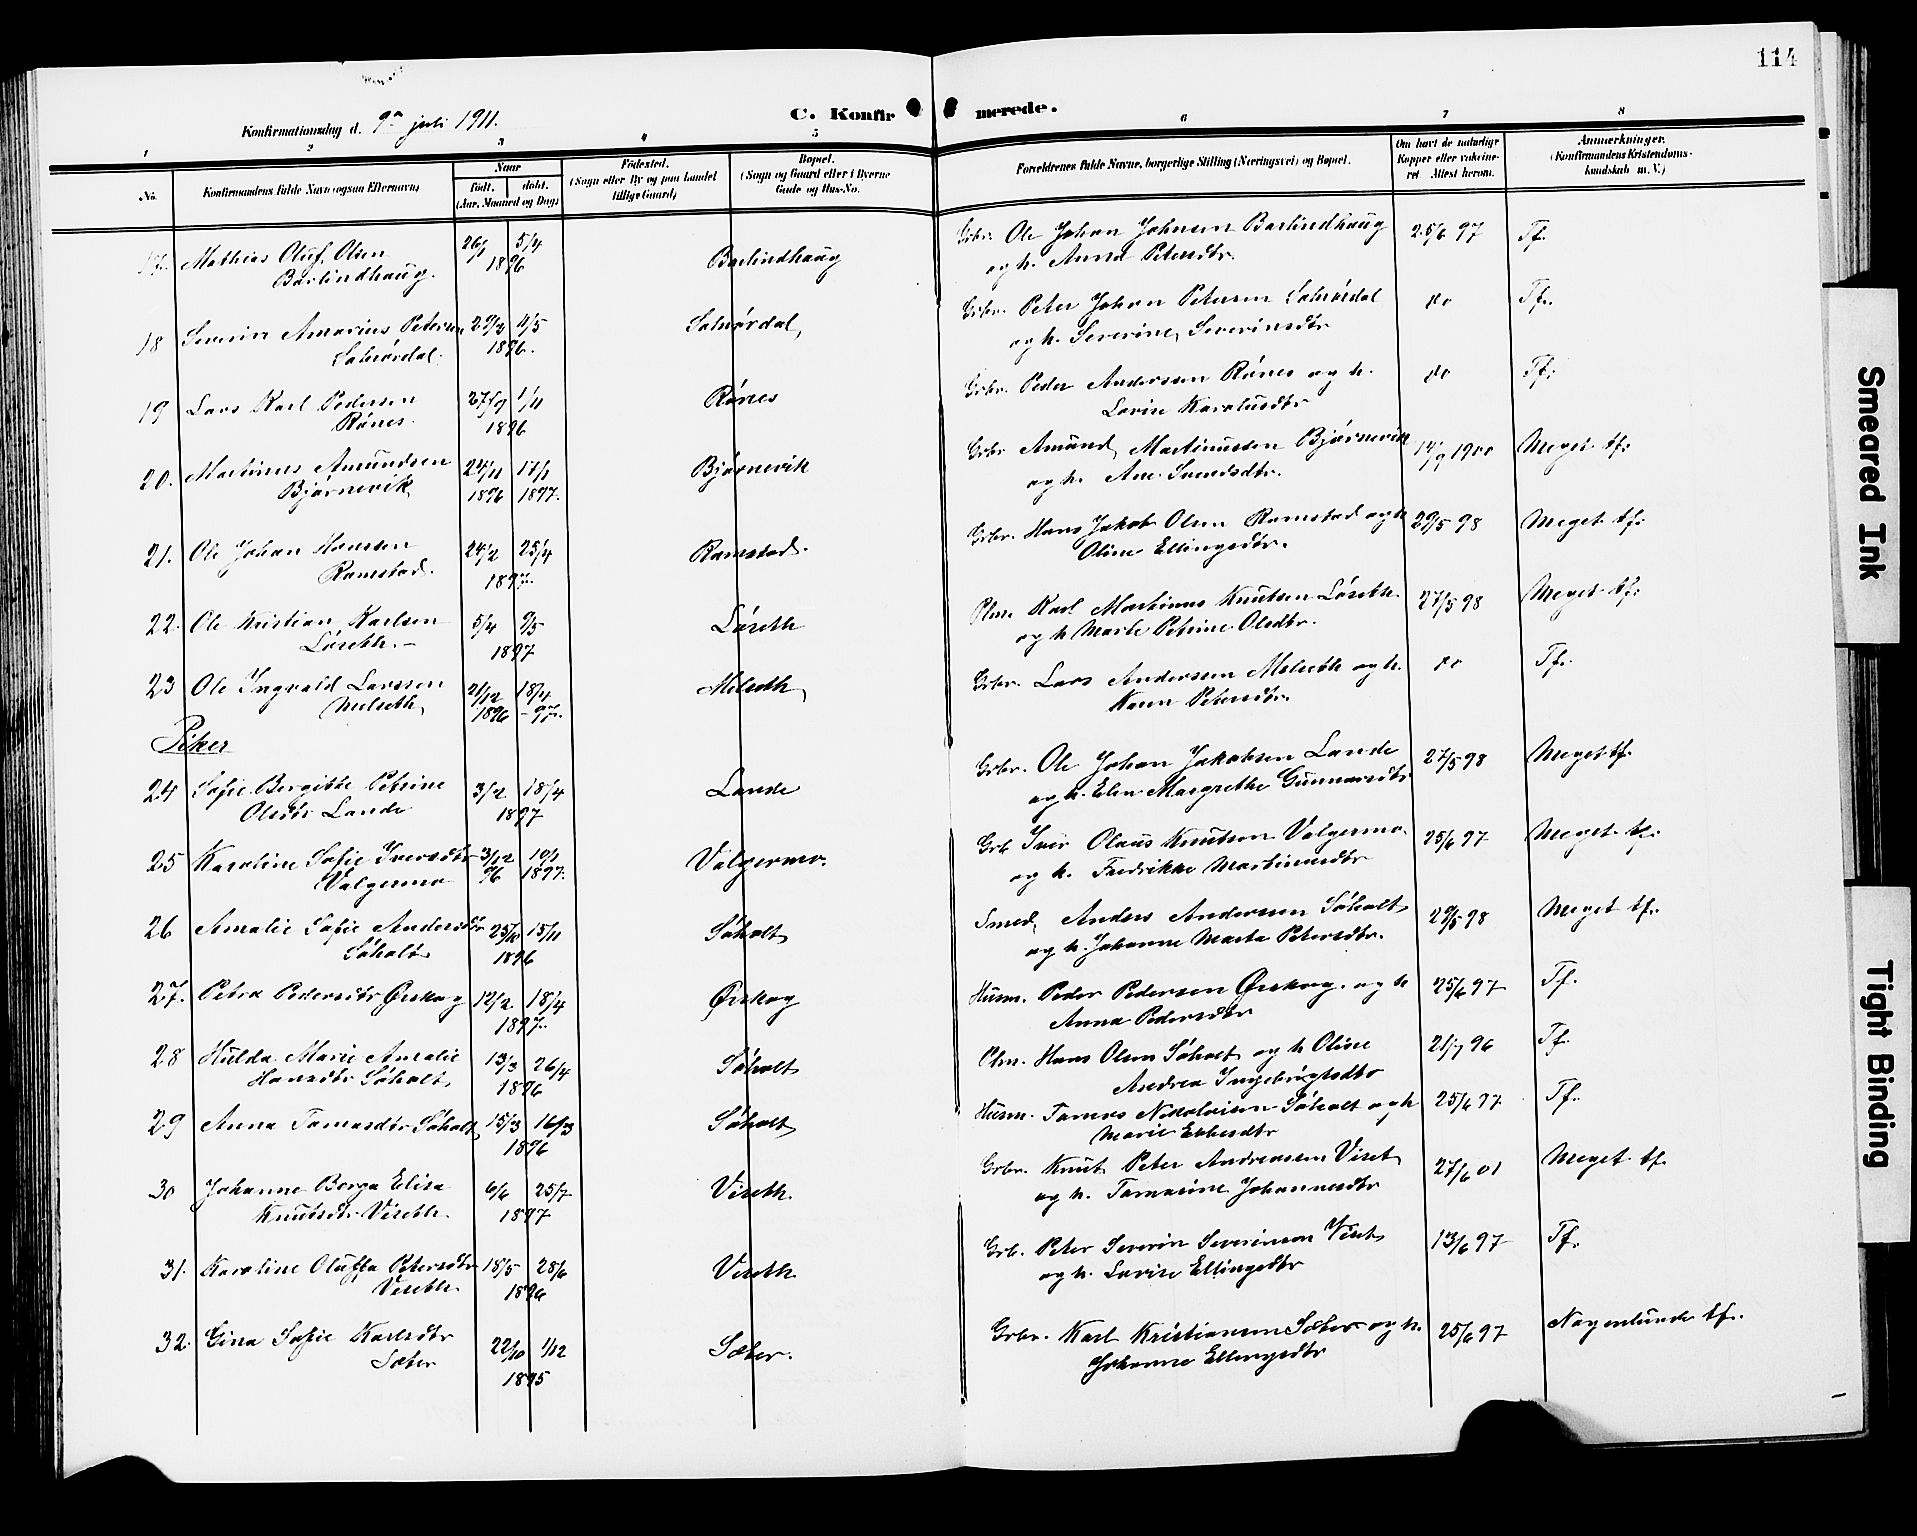 114
Konfirmationsdag d. 9de juli 1911.
C. Konfirmerede.
1 2 3 4 5 6 7 8
No.
Konfirmandens fulde Navn (ogsaa Efternavn)
Naar
født. døbt.
(Aar, Maaned og Dag)
Fødested.
(Sogn eller By og paa Landet
tillige Gaard)
Bopæl.
(Sogn og Gaard eller i Byerne
Gade og Hus-No.
Forældrenes fulde Navne, borgerlige Stilling (Næringsvei) og Bopæl.
Om havt de naturlige
Kopper eller vaksine-
ret Attest herom.
Anmærkninger.
(Konfirmandens Kristendoms-
kundskab m. V.)
17. Mathias Oluf Olsen 26/1 5/4 Barlindhaug Grbr. Ole Johan Johnsen Barlindhaug 25/6 97 Tf.
Barlindhaug. 1896 og h. Anna Petersdtr.
18 Severin Amarius Petersen 29/2 4/5 Solnørdal Grbr. Peter Johan Petersen Solnørdal do Tf.
Solnørdal. 1896. og h. Severine Severinsdtr
19 Lars Karl Pedersen 27/9 1/11 Rónes Grbr. Peder Anderssen Rónes og h. do Tf.
Rónes. 1896 Lovise Karolusdtr
20. Martinus Amundsen 24/11 17/1 Bjørnevik Grbr Amund Martinussen Bjørnevik 14/9 1900 Meget tf.
Bjørnevik 1896 1897. og h. Ane Svendsdtr.
21. Ole Johan Hansen 24/2 25/4 Ramstad. Grbr. Hans Jakob Olsen Ramstad og h 29/5 98 Meget tf.
Ramstad. 1897. Oline Ellingsdtr.
22. Ole Kristian Karlsen 5/4 9/5 Løseth Karl Martinus Knutsen Løseth 27/5 98 Meget tf.
Løseth. – 1897 og h Marte Petrine Olsdtr.
23 Ole Ingvald Larssen 21/12 18/4 Melseth Grbr. Lars Anderssen Melseth og h. do Tf.
Melseth 1896 – 97. Karen Petersdtr.
Piker
24 Sofie Bergitte Petrine 3/2 18/4 Lande Grbr. Ole Johan Jakobsen Lande 27/5 98 Meget tf.
Olsdtr Lande 1897 og h. Elen Margrethe Gunnarsdtr
25 Karoline Sofie Iversdtr 3/12 10/1 Valgermo. Grb Iver Olaus Knutsen Valgermo. 25/6 97 Meget tf.
Valgermo 96 1897. og h. Fredrikke Martinusdtr
26 Amalie Sofie Andersdtr 25/10 15/11 Søholt Smed Anders Anderssen Søholt 29/5 98 Meget tf.
Søholt 1896 og h. Johanne Marta Petersdtr.
27. Petra Pedersdtr Ørskog 12/2 18/4 Ørskog Husm. Peder Pedersen Ørskog. og h 25/6 97 Tf.
1897. Anna Pedersdtr
28 Hulda Marie Amalie 13/3 26/4 Søholt Hans Olsen Søholt og h Oline 21/7 96 Tf.
Hansdtr Søholt 1896 Andrea Ingebrigtsdtr
29 Anna Tomasdtr Søholt 15/3 16/3 Søholt Husm. Tomas Nikolaisen Søholt og h 25/6 97 Tf.
1896 Marie
30 Johanne Borga Elisa 6/6 25/7 Viseth. Grbr. Knut Peter Andreassen Viset 27/6 01 Meget tf.
Knutsdtr Viseth. 1897 og h. Tomasine Johannesdtr
31. Karoline Oluffa Petersdtr 18/5 28/6 Viseth Grb. Peter Severin Severinsen Viset 13/6 97 Tf.
Viseth. 1896 og h. Lovise Ellingsdtr
32. Gina Sofie Karlsdtr 22/10 1/12 Sæter. Grbr. Karl Kristiansen Sæter og h. 25/6 97 Nogenlunde tf.
Sæter 1895 Johanne Ellingsdtr
Smeared Ink
Tight Binding